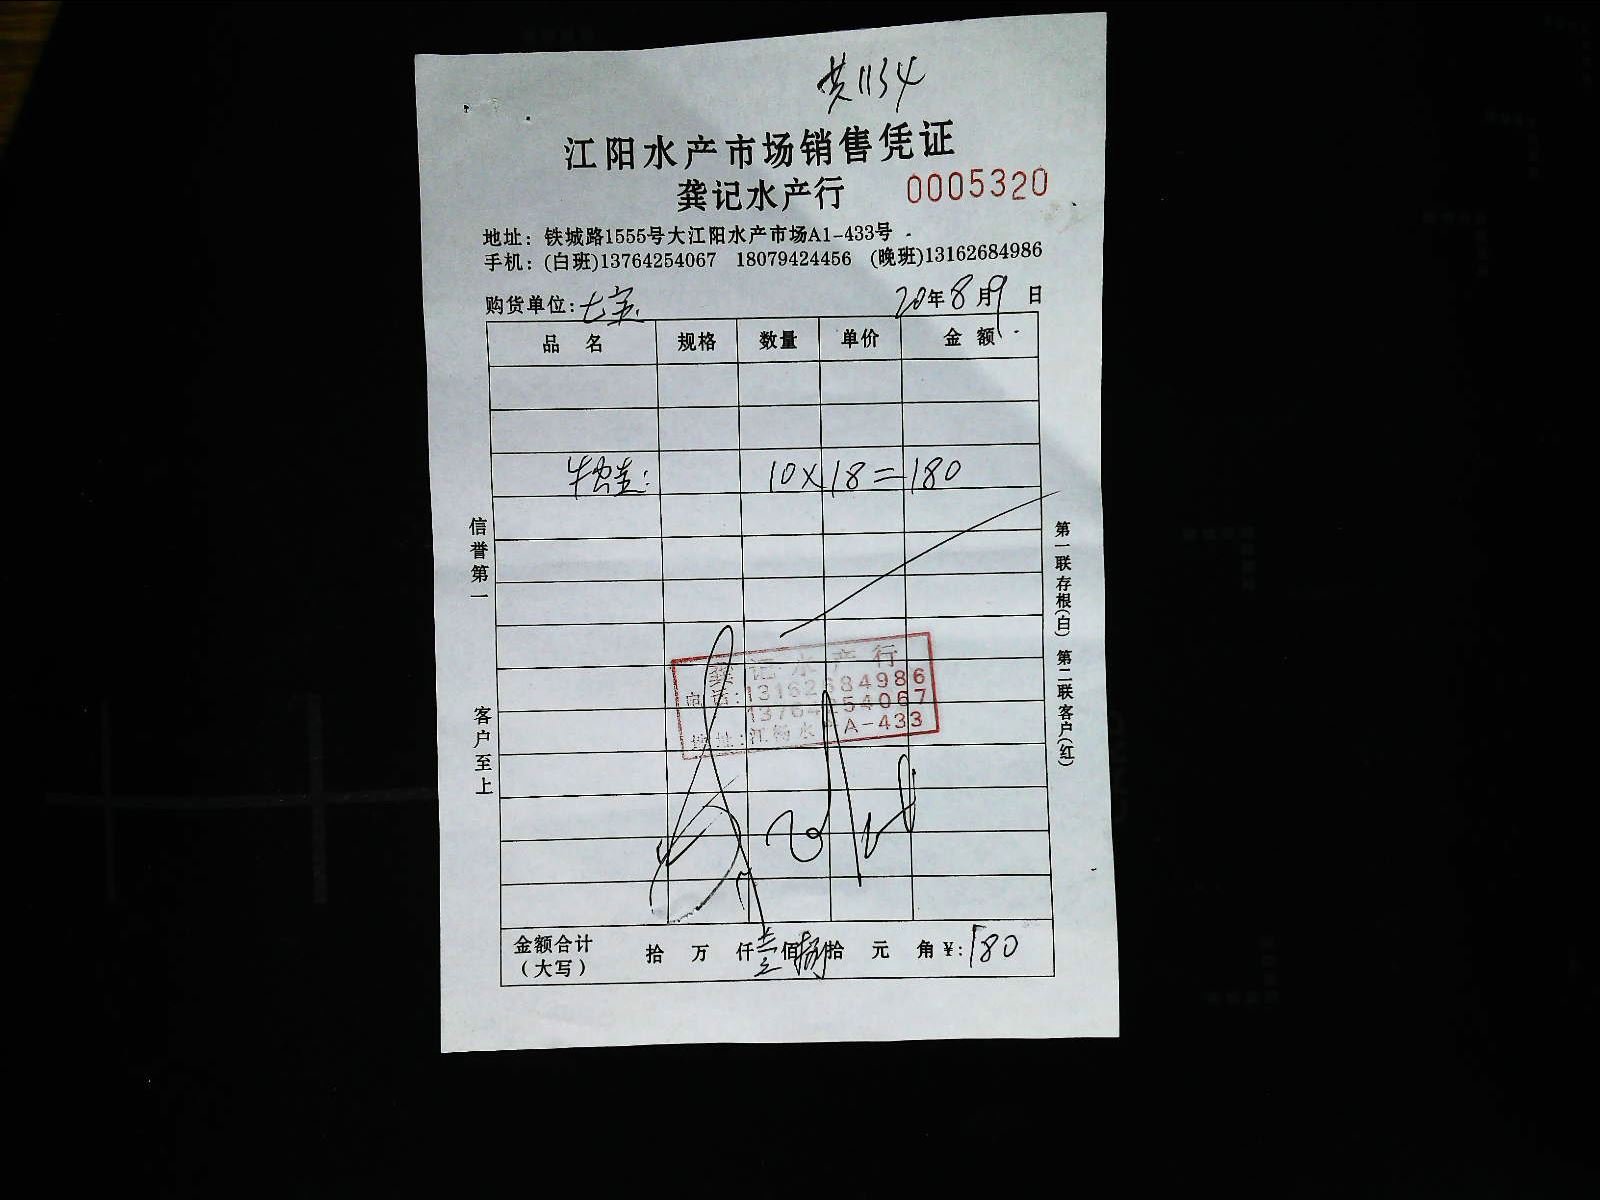 共1134
江阳水产市场销售凭证
龚记水产行 0005320
地址：铁城路1555号大江阳水产市场A1-433号
手机：(白班)13764254067 18079424456 (晚班)13162684986
购货单位：七宝 20年8月9日
品名 规格 数量 单价 金额
牛蛙： 10×18=180
信誉第一
客户至上
第一联存根(白) 第二联客户(红)
龚记水产行
电话：13162684986
13764254067
地址：江杨水产A-433
金额合计 拾 万 仟壹佰捌拾 元 角￥：180
（大写）